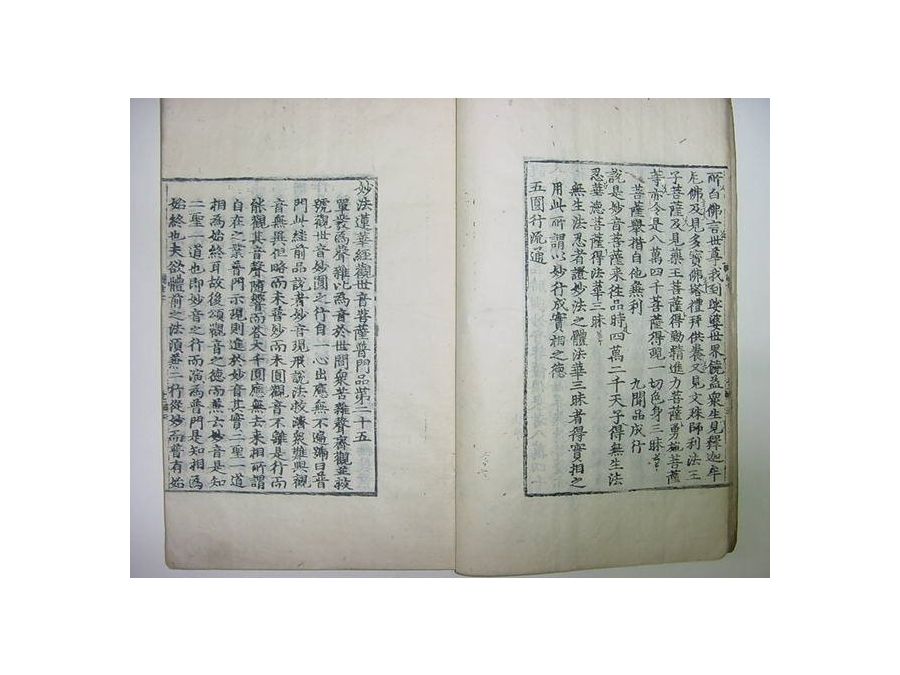 所白佛言世尊我到娑婆世界饒益衆生見釋迦牟
尼佛及見多寶佛塔禮拜供養又見文殊師利法王
子菩薩及見藥王菩薩得勤精進力菩薩勇施菩薩
等亦令是八萬四千菩薩得現一切色身三昧
菩薩舉措自他無利 九聞品成行
說是妙音菩薩來往品時四萬二千天子得無生法
忍華德菩薩得法華三昧
無生法忍者證妙法之體法華三昧者得實相之
用此所謂以妙行成實相之德
五圓行流通
妙法蓮華經觀世音菩薩普門品第二十五
單喪爲聲雜比爲音於世間衆苦雜聲齊觀並救
號觀世音妙圓之行自一心出應無不遍號曰普
門此經前品說者妙音現形說法救濟衆難與觀
音無異但略而未普妙而未圓觀音不離是行而
能觀其音聲隨響而答大千圓應無去來相所謂
自在之業普門示現則進於妙音其實二聖一道
相爲始終耳故後頌觀音之德而兼云妙音是知
二聖一道也即妙音之行而演爲普門是知相爲
始終也夫欲體前之法須兼二行從妙而普有始